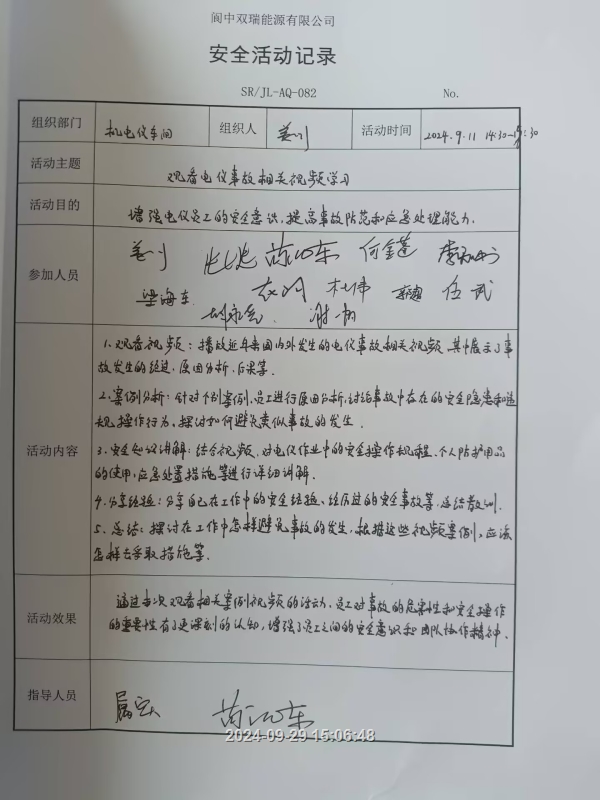 阆中双瑞能源有限公司
安全活动记录
SR/JL-AQ-082 No.
组织部门 机电仪车间 组织人 姜川 活动时间 2024.9.11 14:30-15:30
活动主题 观看电仪事故相关视频学习
活动目的 增强电仪员工的安全意识，提高事故防范和应急处理能力.
参加人员
姜川 何金蓬
梁海东 杜伟 任武
活动内容
1.观看视频：播放近年来国内外发生的电仪事故相关视频，其中展示了事
故发生的经过，原因分析，后果等.
2.案例分析：针对个别案例，员工进行原因分析，讨论事故中存在的安全隐患和违
规操作行为，探讨如何避免类似事故的发生.
3.安全知识讲解：结合视频，对电仪作业中的安全操作规程、个人防护用品
的使用，应急处置措施等进行详细讲解.
4.分享经验：分享自己在工作中的安全经验、经历过的安全事故等，总结教训.
5.总结：探讨在工作中怎样避免事故的发生，根据这些视频案例，应该
怎样去采取措施等.
活动效果
通过本次观看相关案例视频的活动，员工对事故的危害性和安全操作
的重要性有了更深刻的认知，增强了员工之间的安全意识和团队协作精神.
指导人员
2024-09-29 15:06:48